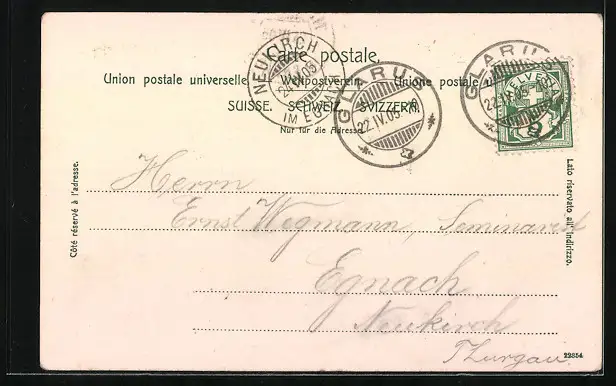 Carte postale.
Union postale universelle. Weltpostverein. Unione postale
SUISSE. SCHWEIZ. SVIZZERA.
Nur für die Adresse.
NEUKIRCH
IM EGNACH
GLARUS
22.IV.05
GLARUS
22.IV.05
HELVETIA
Côté réservé à l'adresse.
Lato riservato all' indirizzo.
Herrn
Ernst Wegmann, Seminarist
Egnach
Neukirch
Thurgau
22354